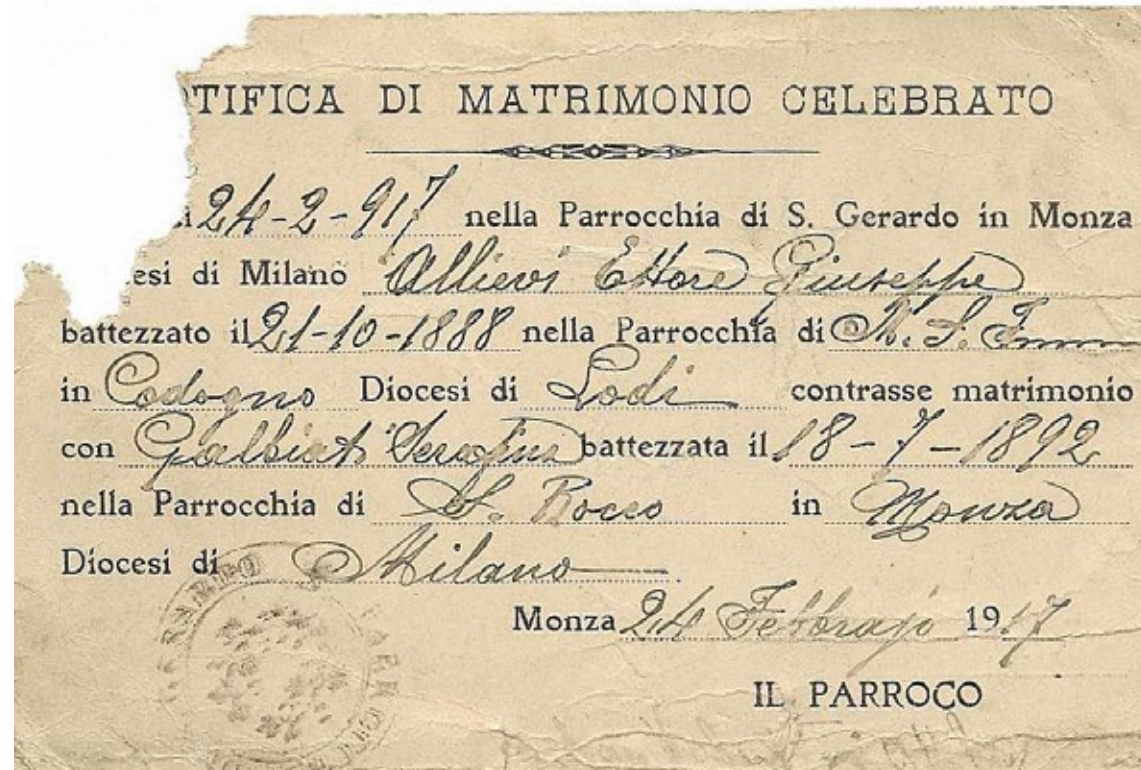 TIFICA DI MATRIMONIO CELEBRATO
24-2-917 nella Parrocchia di S. Gerardo in Monza
esi di Milano Allievi Ettore Giuseppe
battezzato il 21-10-1888 nella Parrocchia di M. S. Imm
in Codogno Diocesi di Lodi contrasse matrimonio
con Galbiati Serafina battezzata il 18-7-1892
nella Parrocchia di S. Rocco in Monza
Diocesi di Milano
Monza 24 Febbrajo 1917
IL PARROCO